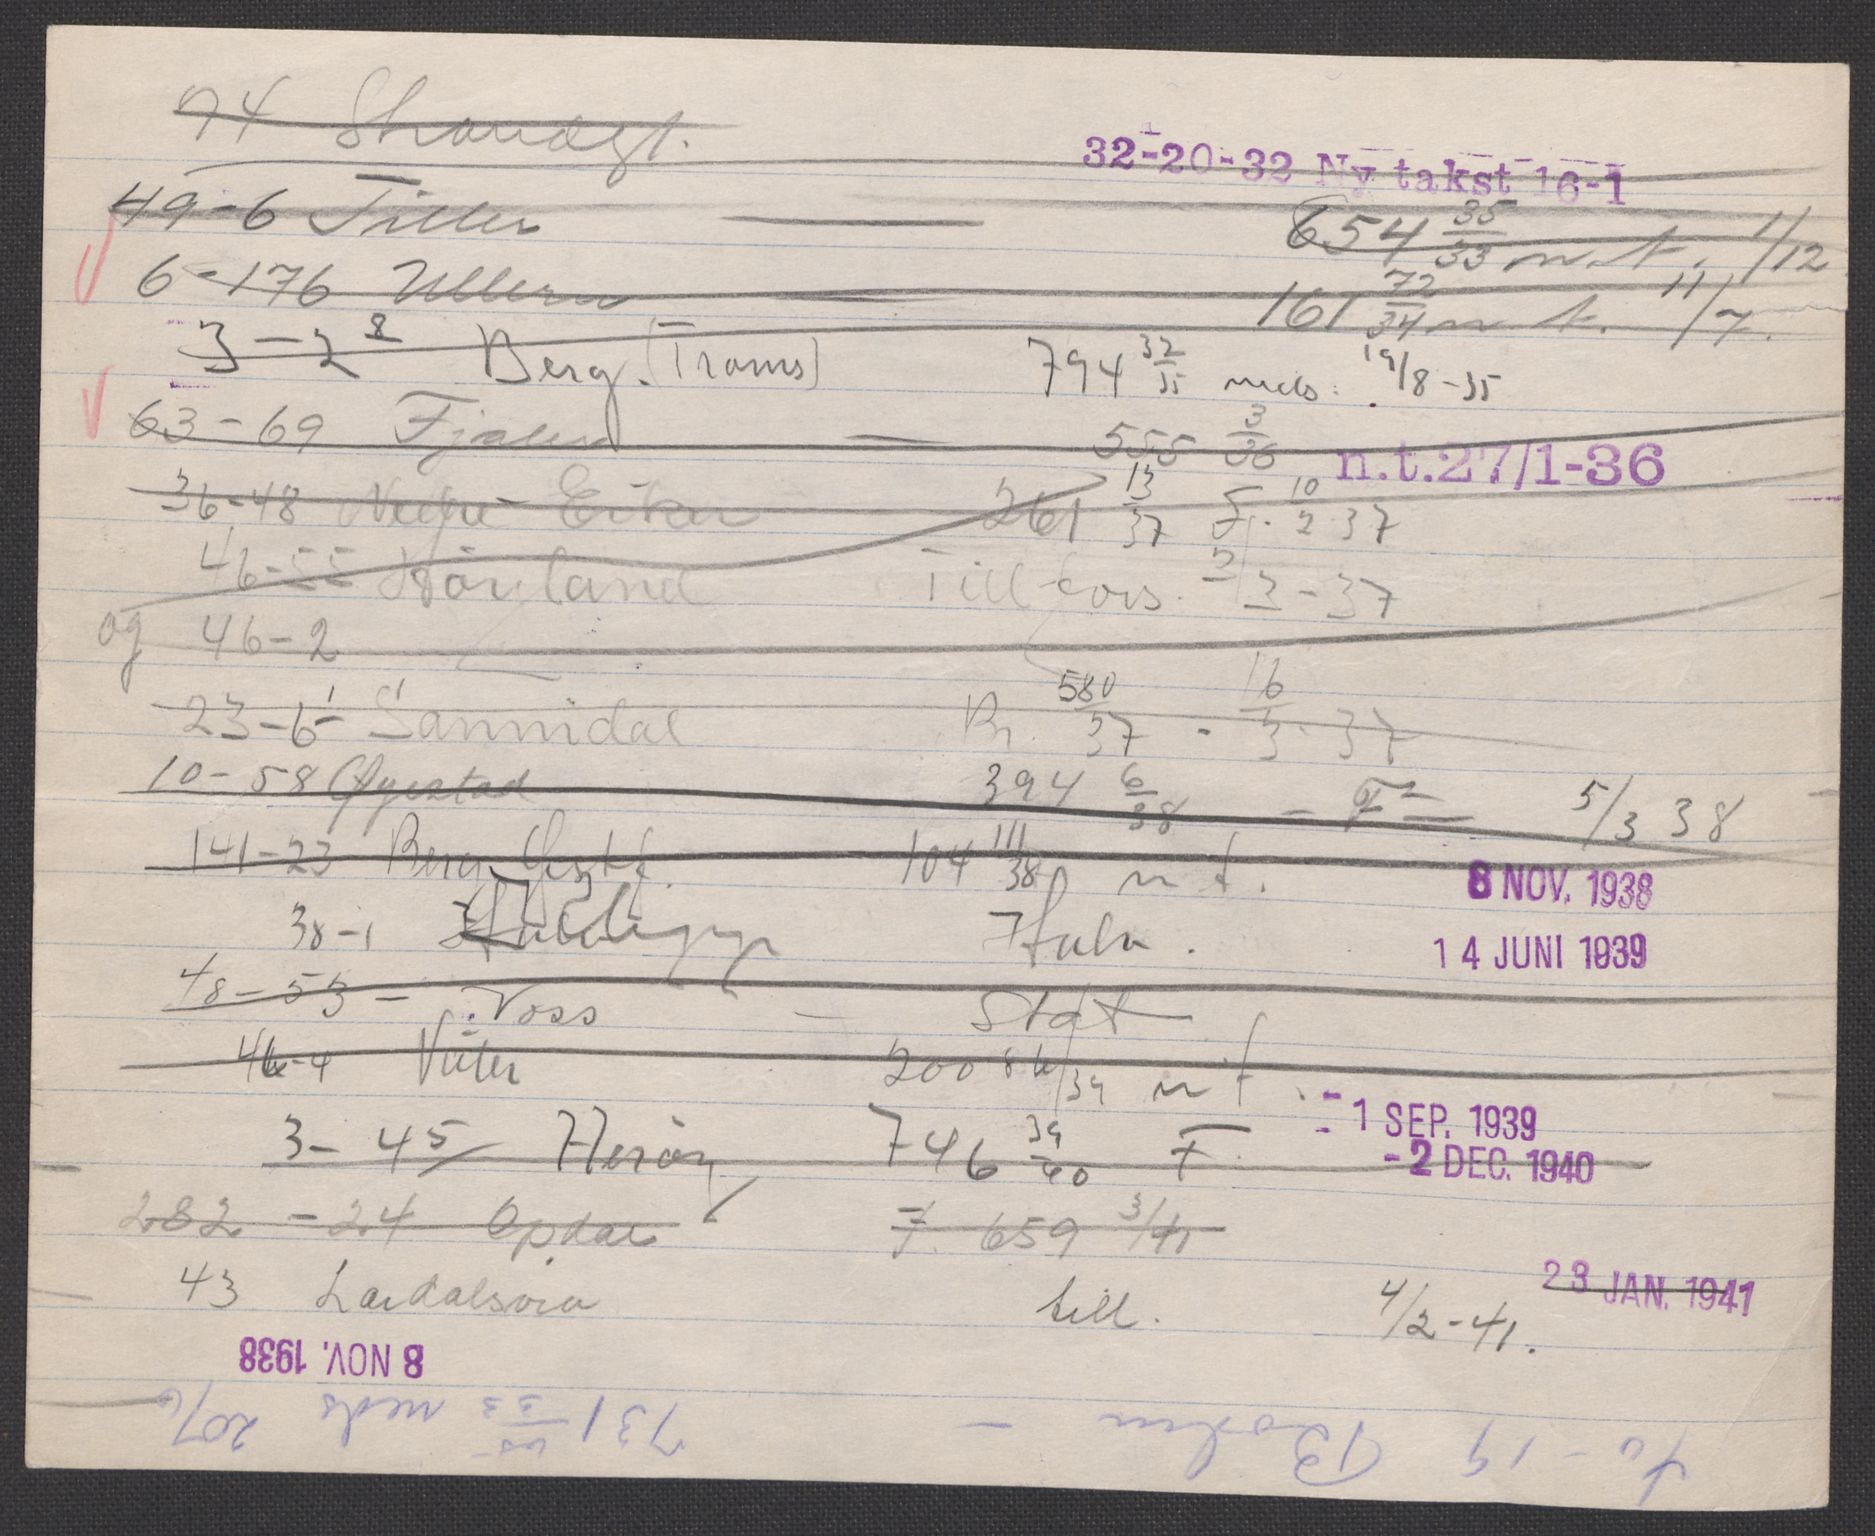 74 Strandgt.
32-20-32 Ny takst 16-1
49-6 Tiller — 654 35/33 n.t. 1/12
6-176 Ullern — 161 72/34 n.t. 11/7.
3-2 8 Berg. (Troms) 794 32/35 neds. 19/8-35
63-69 Fjaler — 555 3/36 n.t.27/1-36
36-48 Nedre-Eiker 261 13/37 F. 10/2 37
46-55 Hörland Till fors. 3/3-37
og 46-2
23-6 1 Sannidal Br. 580/37 - 16/3-37
10-58 Øyestad 394 6/38 - F 5/3 38
141-23 Berg 104 111/38 n t.
8 NOV. 1938
38-1 Halv.
14 JUNI 1939
48-53- Voss — Stat
46-4 200 86/39 n t.
-1 SEP. 1939
3-45 Herøy 746 39/40 F.
-2 DEC. 1940
282-24 Opdal F. 659 3/41
23 JAN. 1941
43 Lærdalsøra till. 4/2-41.
8 NOV. 1938
19 — 731 35/33 neds 20/6